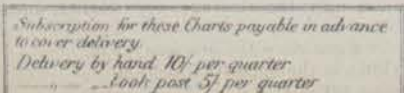 Subscription for these Charts payable in advance
to cover delivery.
Delivery by hand 10/- per quarter
" " book post 5/- per quarter